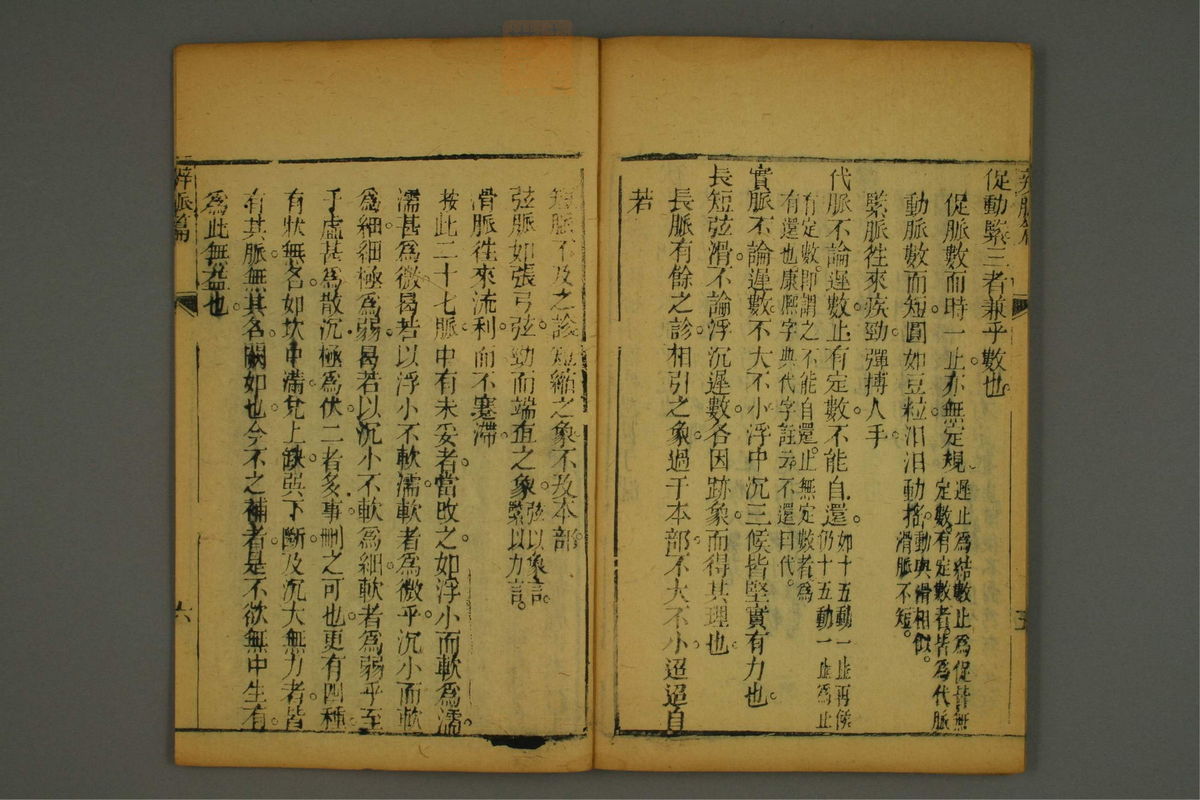 辨脈篇
五
促動緊三者兼乎數也。
促脈數而時一止。亦無定規。遲止為結。數止為促。皆無定數。有定數者。皆為代脈
動脈數而短。圓如豆粒。汨汨動搖。動與滑相似。滑脈不短。
緊脈徃來疾勁。彈搏人手。
代脈不論遲數。止有定數。不能自還。如十五動一止。再候仍十五動一止。為止
有定數。即謂之不能自還。止無定數者。為
有還也。康熙字典代字註云。不還曰代。
實脈不論遲數。不大不小。浮中沉三候皆堅實有力也。
長短弦滑。不論浮沉遲數。各因跡象而得其理也。
長脈有餘之診。相引之象。過于本部。不大不小。迢迢自
若
短脈不及之診。短縮之象。不及本部。
弦脈如張弓弦。勁而端直之象。弦以象言。緊以力言。
滑脈徃來流利而不蹇滯。
按此二十七脈中有未妥者。當改之。如浮小而軟為濡。
濡甚為微。曷若以浮小不軟濡。軟者為微乎。沉小而軟
為細。細極為弱。曷若以沉小不軟為細。軟者為弱乎。至
于虛甚為散。沉極為伏。二者多事。刪之可也。更有四種
有狀無名。如坎中滿。兌上缺。巽下斷。及沉大無力者。皆
有其脈無其名。闕如也。今不之補者。是不欲無中生有。
為此無益也。
辨脈篇
六